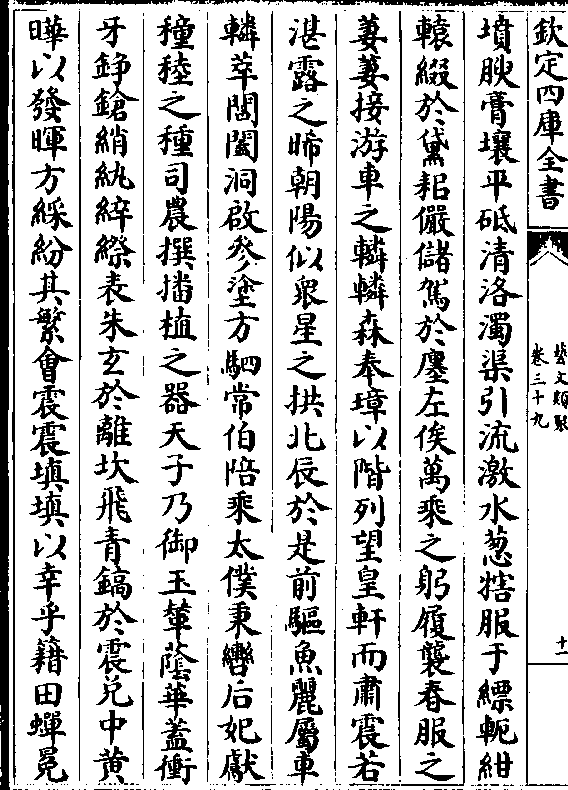 欽定四庫全書
藝文類聚
卷三十九
十一
墳腴膏壤平砥清洛濁渠引流激水蔥犗服于縹軛紺
轅綴於黛耜儼儲駕於廛左俟萬乘之躬履襲春服之
萋萋接游車之轔轔森奉璋以階列望皇軒而肅震若
湛露之晞朝陽似眾星之拱北辰於是前驅魚麗屬車
轔萃閶闔洞啟參塗方駟常伯陪乘太僕秉轡后妃獻
穜稑之種司農撰播植之器天子乃御玉輦蔭華蓋衝
牙錚鎗綃紈綷縩表朱玄於離坎飛青鎬於震兌中黃
曄以發暉方綵紛其繁會震震填填以幸乎籍田蟬冕